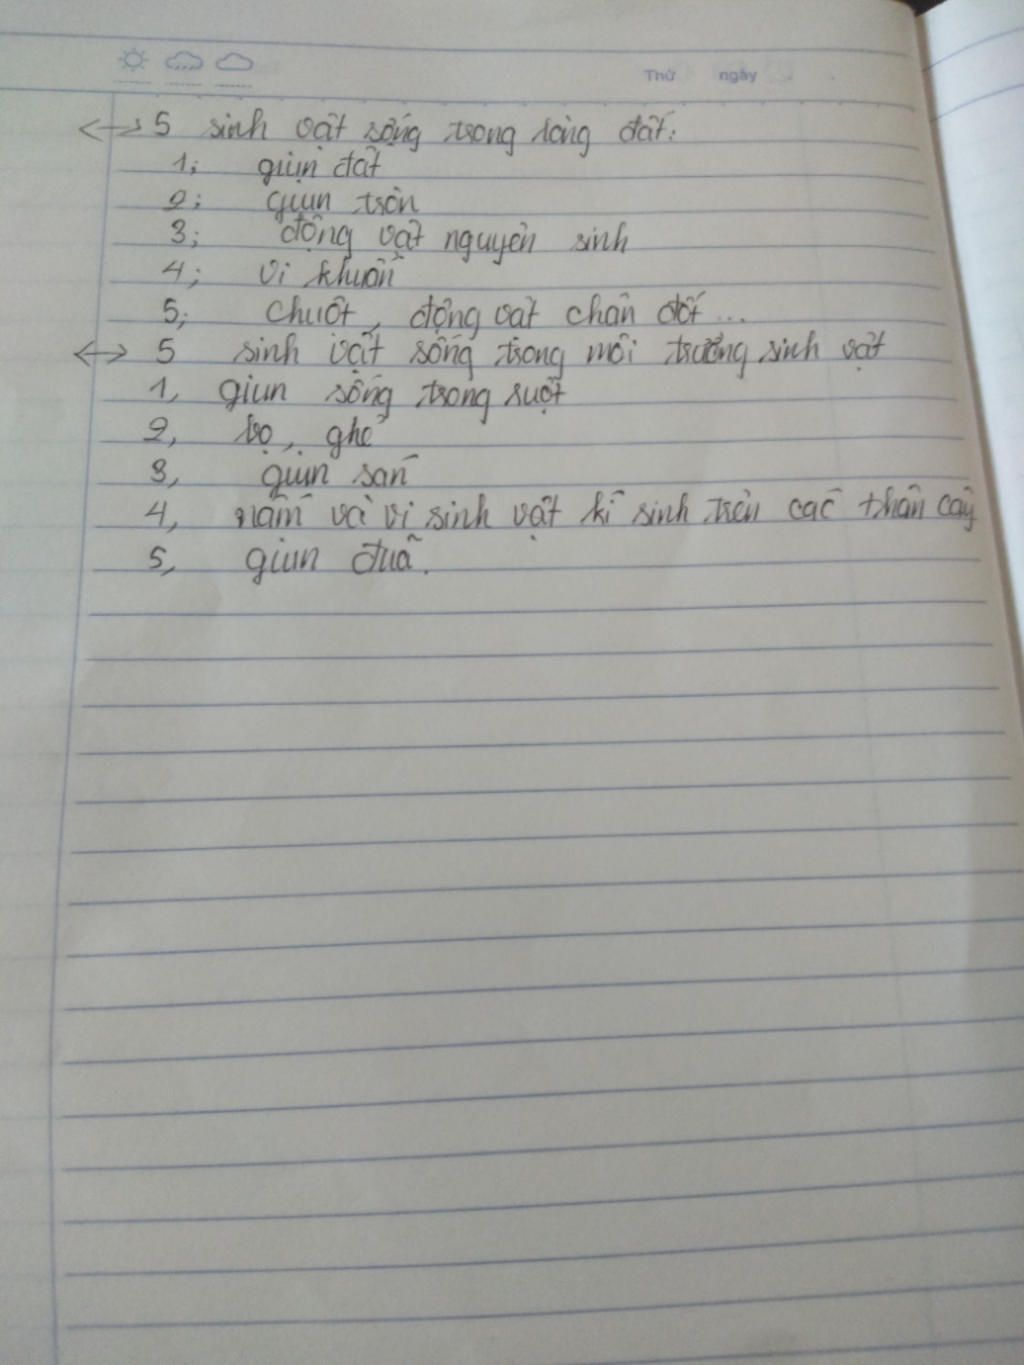 Thứ ngày
<-> 5 sinh vật sống trong lòng đất:
1; giun đất
2; giun tròn
3; động vật nguyên sinh
4; vi khuẩn
5; chuột, động vật chân đốt...
<-> 5 sinh vật sống trong môi trường sinh vật
1, giun sống trong ruột
2, bọ, ghẻ
3, giun sán
4, nấm và vi sinh vật kí sinh trên các thân cây
5, giun đũa.